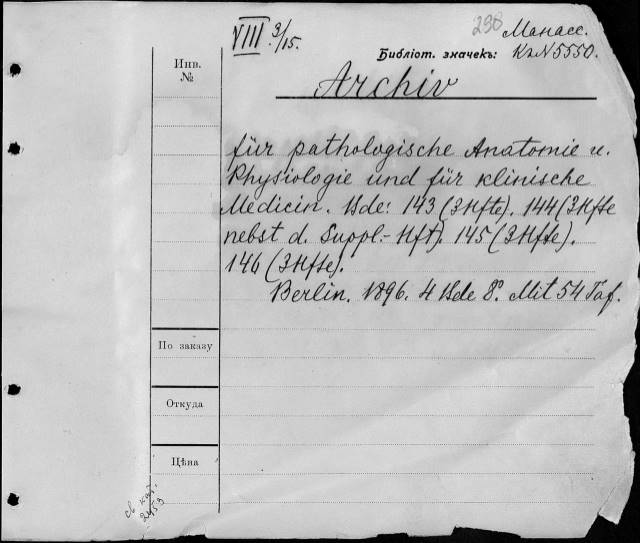 VIII 3/15.
298
Манасс.
Библіот. значекъ: К2N5550.
Инв. №
Archiv
für pathologische Anatomie u.
Physiologie und für klinische
Medicin. Bde: 143 (3Hfte). 144 (3Hfte
nebst d. Suppl.-Hft). 145 (3Hfte).
146 (3Hfte).
Berlin. 1896. 4 Bde 8°. Mit 54 Taf.
По заказу
Откуда
Цѣна
св кат.
2453